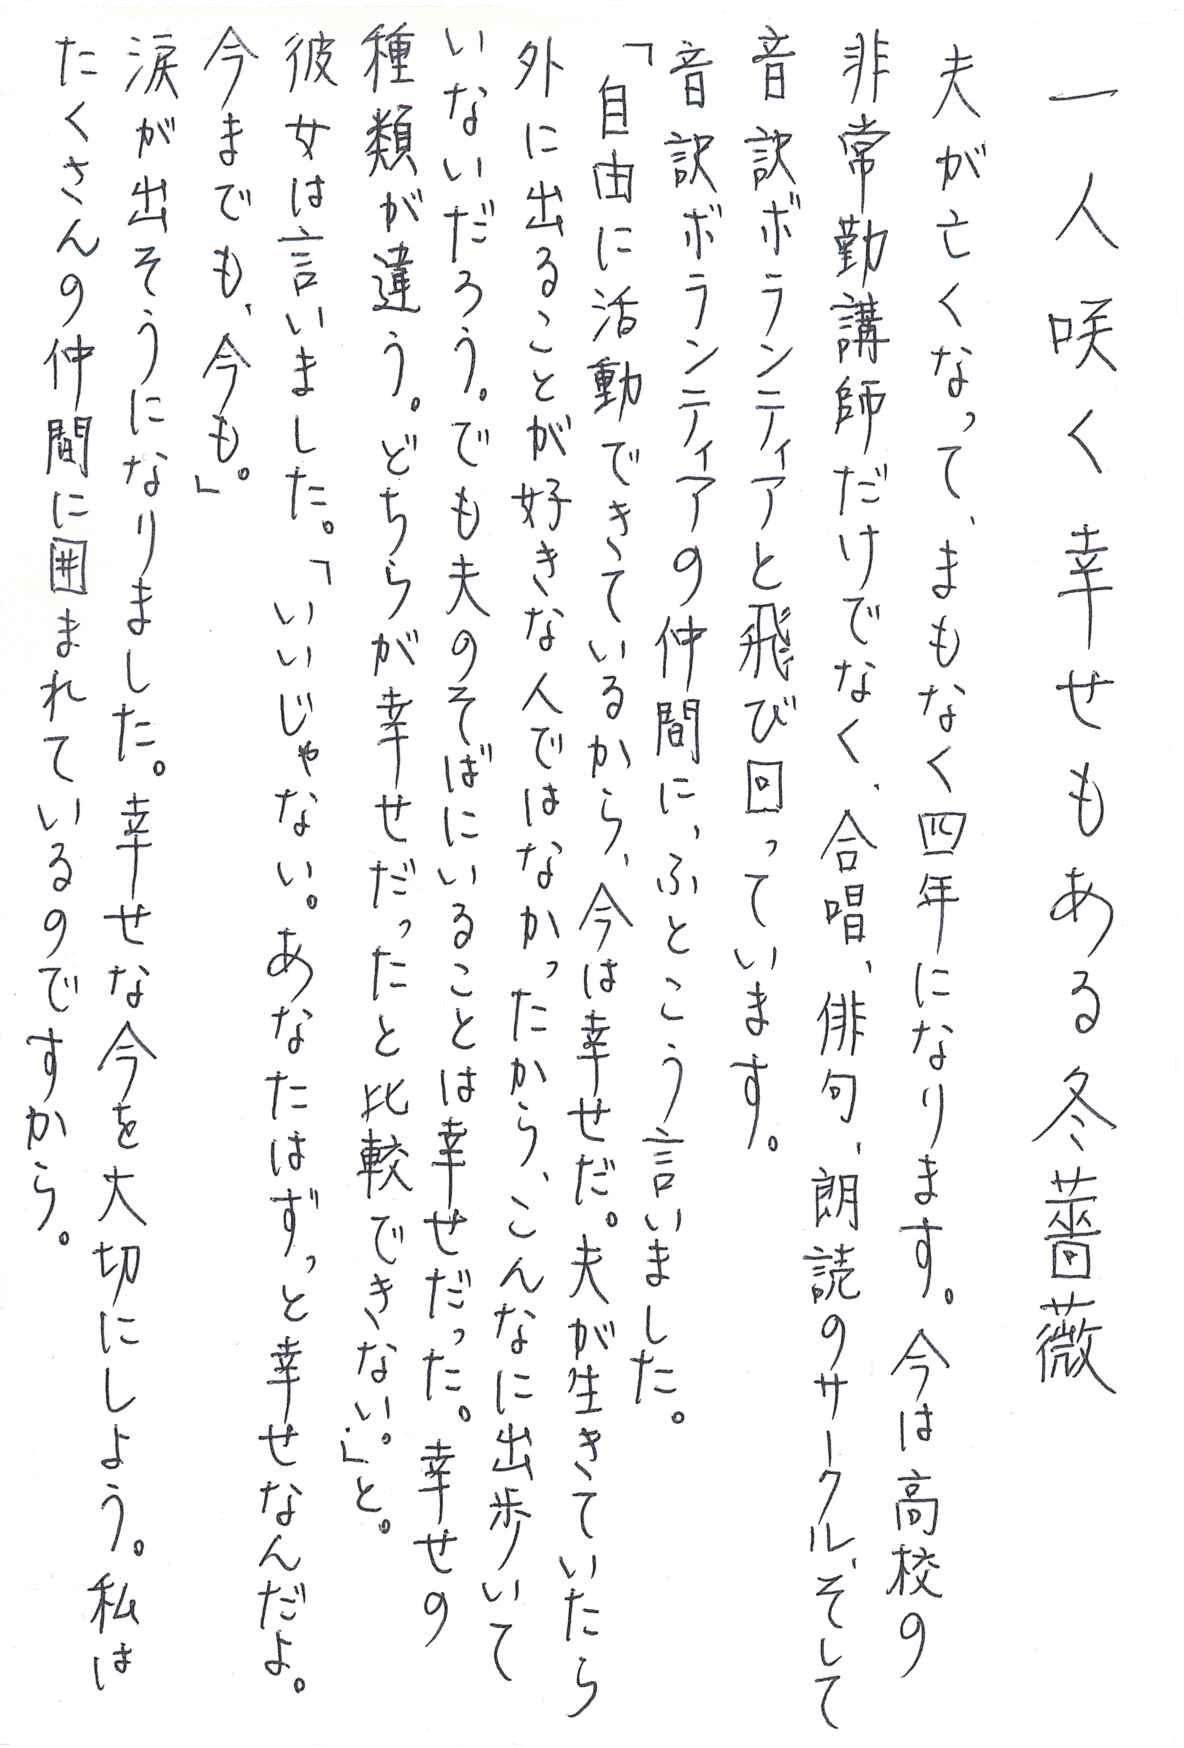 一人咲く幸せもある冬薔薇
夫が亡くなって、まもなく四年になります。今は高校の
非常勤講師だけでなく、合唱、俳句、朗読のサークル、そして
音訳ボランティアと飛び回っています。
音訳ボランティアの仲間に、ふとこう言いました。
「自由に活動できているから、今は幸せだ。夫が生きていたら
外に出ることが好きな人ではなかったから、こんなに出歩いて
いないだろう。でも夫のそばにいることは幸せだった。幸せの
種類が違う。どちらが幸せだったと比較できない。」と。
彼女は言いました。「いいじゃない。あなたはずっと幸せなんだよ。
今までも、今も。」
涙が出そうになりました。幸せな今を大切にしよう。私は
たくさんの仲間に囲まれているのですから。